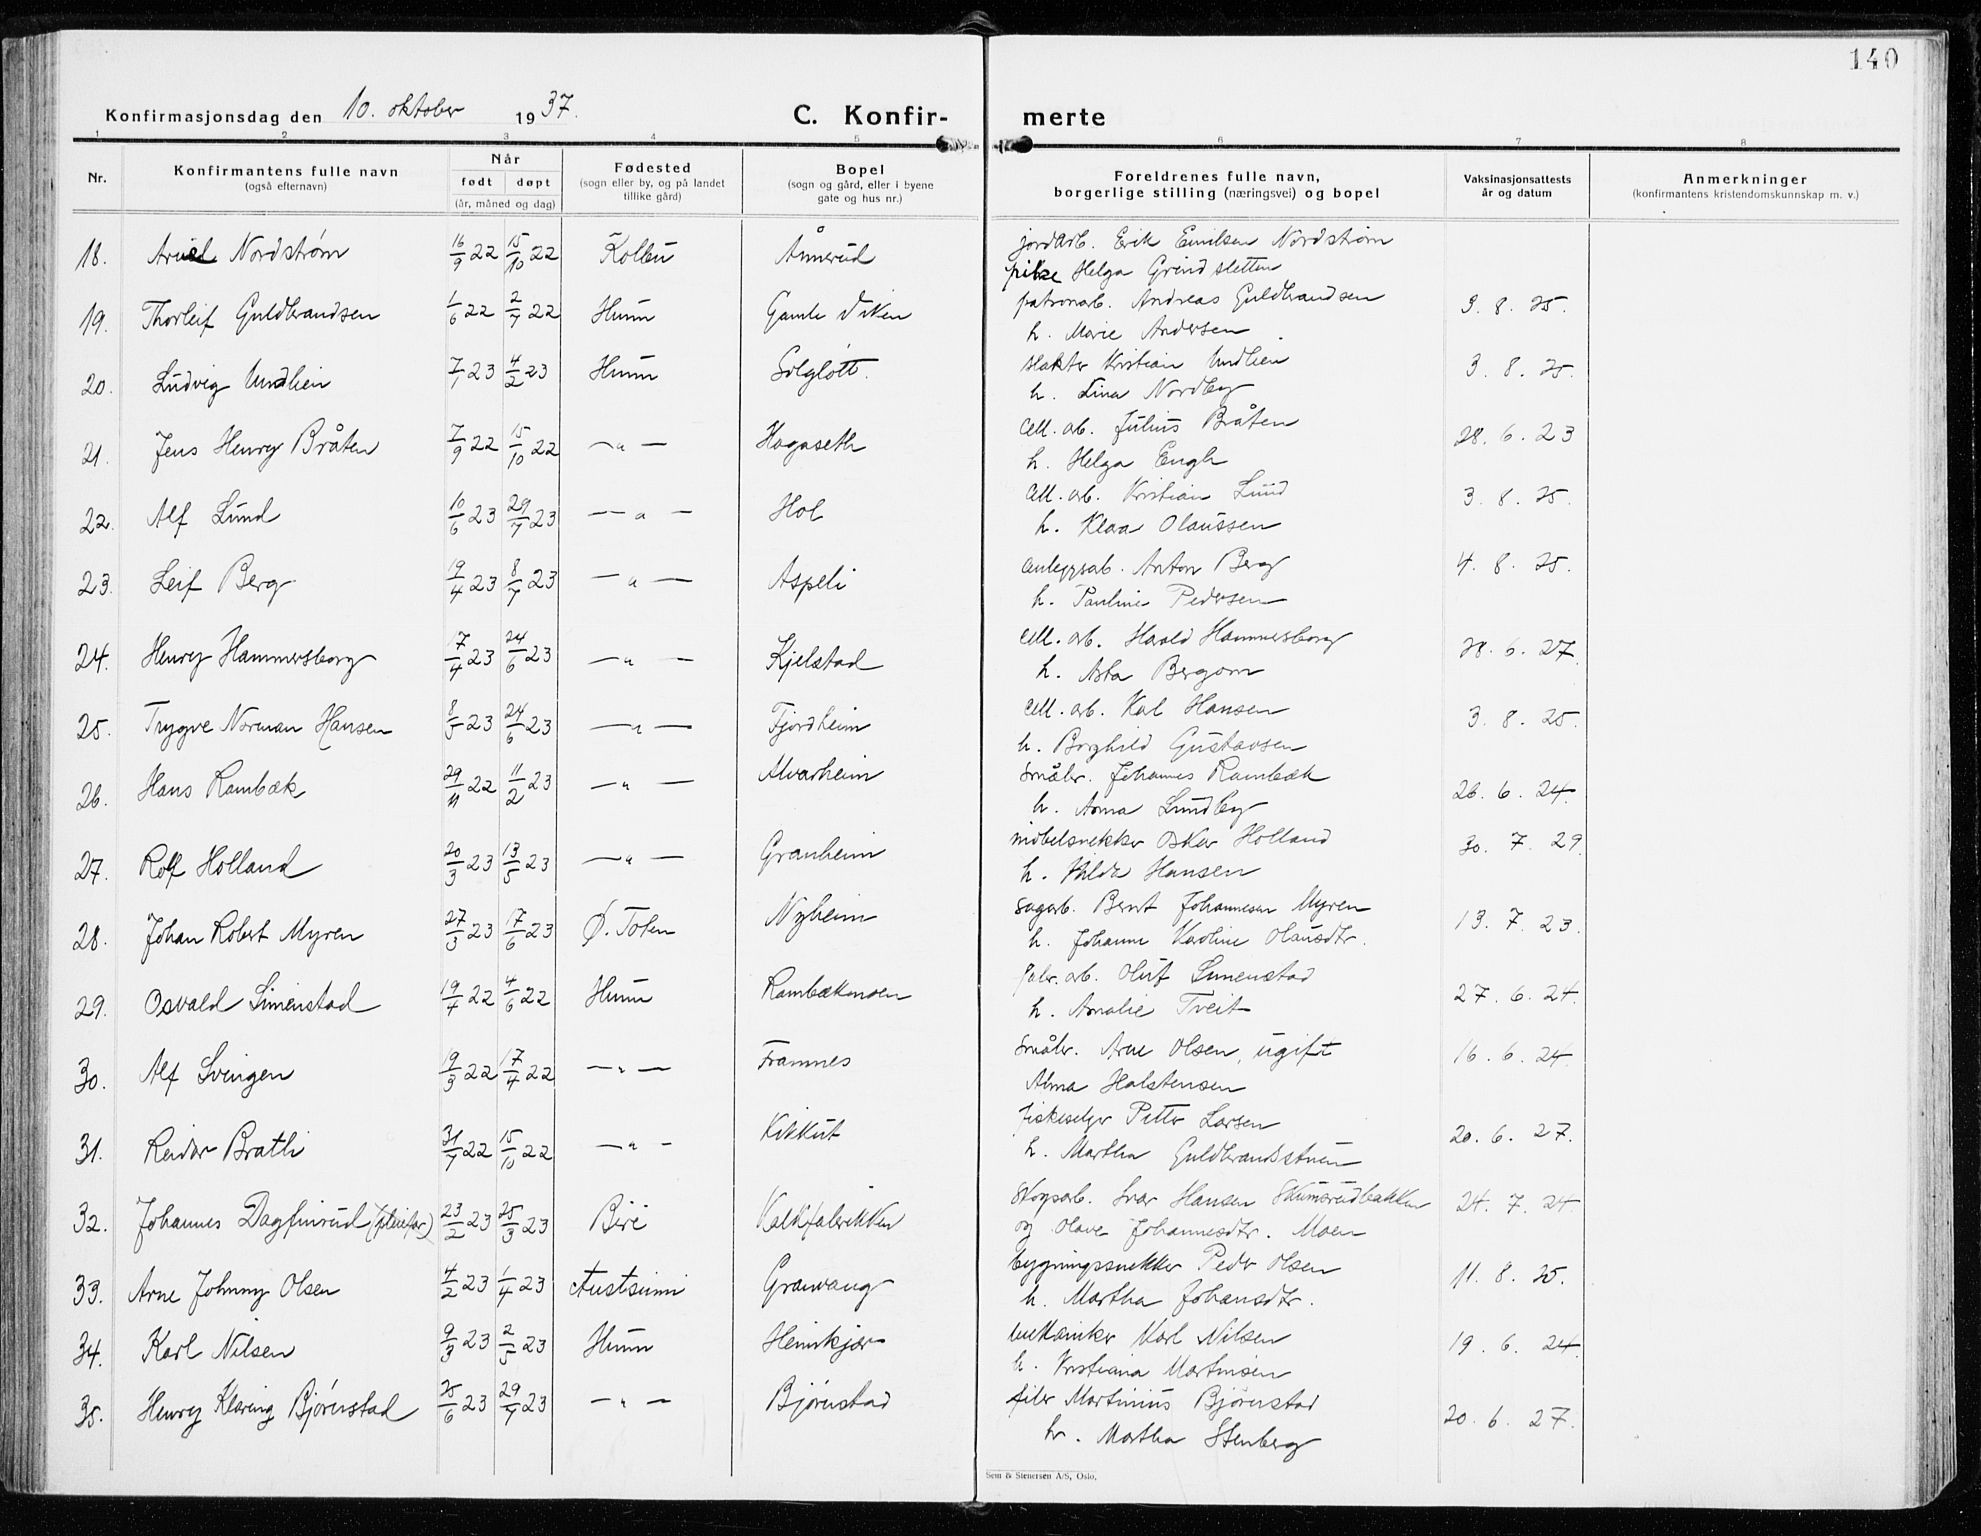 140
Konfirmasjonsdag den 10. oktober 1937.
C. Konfir-merte
1 2 3 4 5 6 7 8
Nr.
Konfirmantens fulle navn
(også efternavn)
Når
født døpt
(år, måned og dag)
Fødested
(sogn eller by, og på landet
tillike gård)
Bopel
(sogn og gård, eller i byene
gate og hus nr.)
Foreldrenes fulle navn,
borgerlige stilling (næringsvei) og bopel
Vaksinasjonsattests
år og datum
Anmerkninger
(konfirmantens kristendomskunnskap m. v.)
18. Arvid Nordstrøm 16/9 22 15/10 22 Kolbu Ånnerud jordarb. Erik Emilsen Nordstrøm
pike Helga Grindsletten
19. Thorleif Guldbrandsen 1/6 22 2/7 22 Hunn Gamle Viken patronarb. Andreas Guldbrandsen 3. 8. 25.
h. Marie Andersen
20. Ludvig Undlien 7/1 23 4/2 23 Hunn Solgløtt. slakter Kristian Undlien 3. 8. 25.
h. Lina Nordby
21. Jens Henry Bråten 7/9 22 15/10 22 — " — Hagaseth cell. arb. Julius Bråten 28. 6. 23
h. Helga Engh
22. Alf Lund 10/6 23 29/7 23 — " — Hol cell. arb. Kristian Lund 3. 8. 25.
h. Klara Olaussen
23. Leif Berg 19/4 23 8/7 23 — " — Aspeli anleggsarb. Anton Berg 4. 8. 25.
h. Pauline Pedersen
24. Henry Hammersborg 17/4 23 24/6 23 — " — Kjelstad cell. arb. Harald Hammersborg 28. 6. 27.
h. Asta Bergom
25. Trygve Norman Hansen 8/5 23 24/6 23 — " — Fjordheim cell. arb. Karl Hansen 3. 8. 25.
h. Borghild Gustavsen
26. Hans Rambæk 29/11 22 11/2 23 — " — Alvarheim småbr. Johannes Rambæk 26. 6. 24.
h. Anna Lundby
27. Rolf Holland 20/3 23 13/5 23 — " — Granheim møbelsnekker Oskar Holland 30. 7. 29.
h. Hilda Hansen
28. Johan Robert Myren 27/3 23 17/6 23 Ø. Toten Nyheim sagarb. Bernt Johannesen Myren 13. 7. 23.
h. Johanne Karoline Olausdtr.
29. Osvald Simenstad 19/4 22 4/6 22 Hunn Rambækmoen fabr. arb. Oluf Simenstad 27. 6. 24.
h. Amalie Tveit
30. Alf Svingen 19/3 22 17/4 22 — " — Framnes småbr. Arne Olsen, ugift 16. 6. 24
Alma Halstensen
31. Reidar Bratli 31/7 22 15/10 22 — " — Kikkut fiskeselger Petter Larsen 20. 6. 27.
h. Martha Guldbrandsstuen
32. Johannes Dagfinrud (pleiefar) 23/2 23 25/3 23 Biri Kalkfabrikken skogsarb. Ivar Hansen Skumsrudbakken 24. 7. 24.
og Olave Johannesdtr. Moen
33. Arne Johnny Olsen 4/2 23 1/4 23 Austsinni Granvang bygningssnekker Peder Olsen 11. 8. 25.
h. Martha Johansdtr.
34. Karl Nilsen 9/3 23 2/5 23 Hunn Heimkjær mekaniker Karl Nilsen 19. 6. 24.
h. Kristiana Martinsen
35. Henry Klaring Bjørnstad 25/6 23 29/7 23 — " — Bjørnstad filer Martinius Bjørnstad 20. 6. 27.
h. Martha Stenberg
Sem & Stenersen A/S, Oslo.